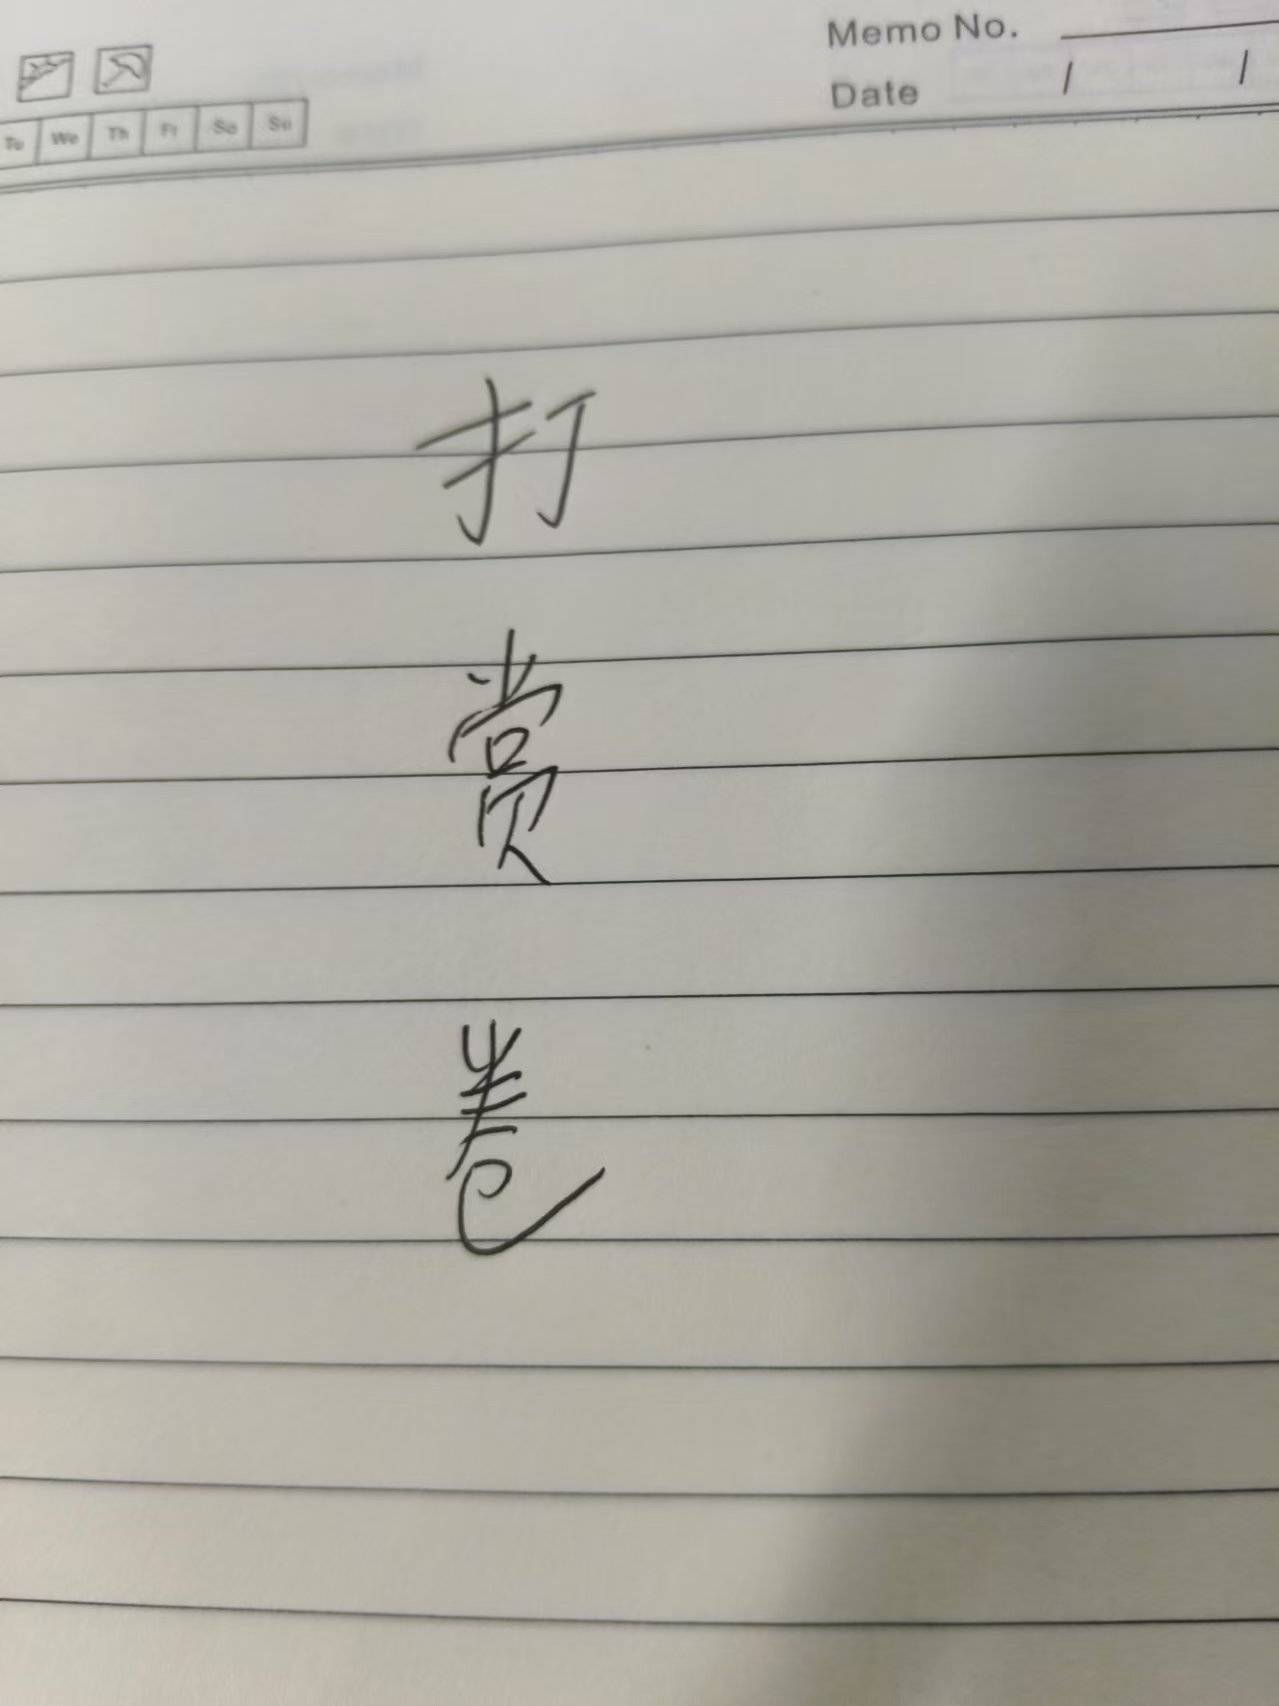 Memo No.
Date / /
Tu We Th Fr Sa Su
打
赏
卷